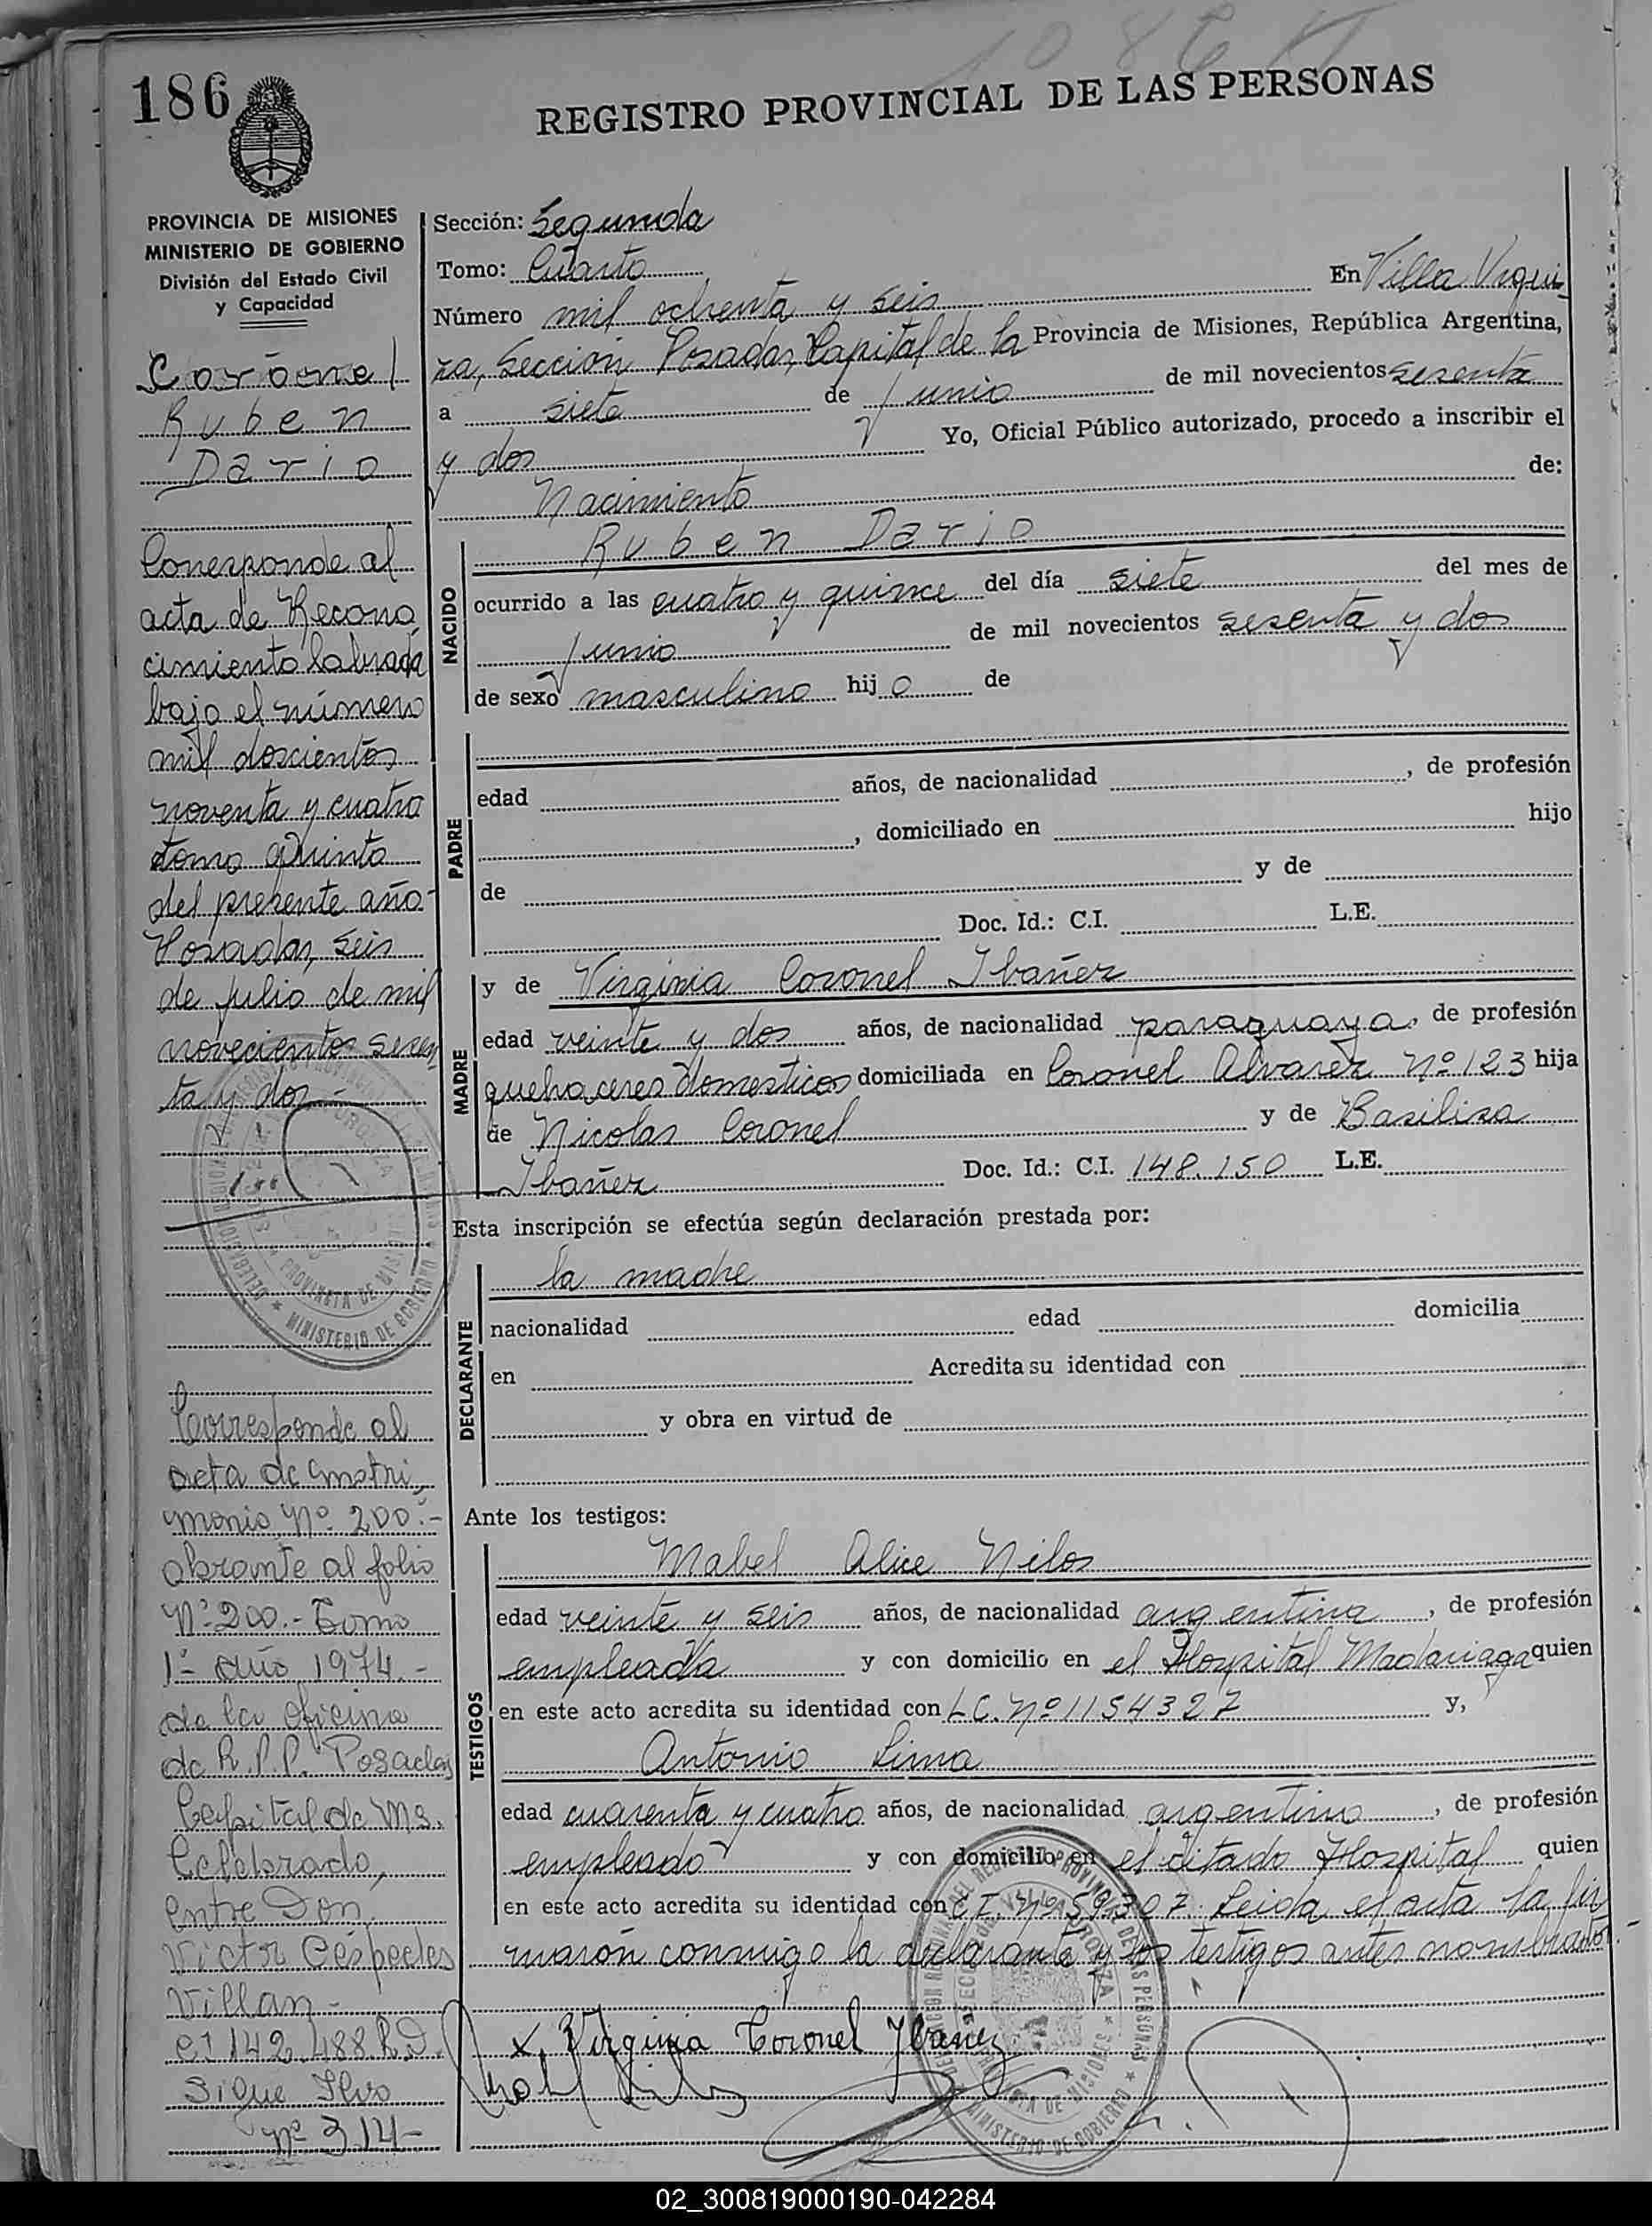 186
REGISTRO PROVINCIAL DE LAS PERSONAS
PROVINCIA DE MISIONES
MINISTERIO DE GOBIERNO
División del Estado Civil
y Capacidad
Coronel
Ruben
Dario
Corresponde al
acta de Recono
cimiento labrada
bajo el número
mil doscientos
noventa y cuatro
tomo quinto
del presente año-
Posadas, seis
de julio de mil
novecientos sesen
ta y dos.-
Corresponde al
acta de matri
monio Nº 200.-
obrante al folio
Nº 200.- Tomo
1º año 1974.-
de la oficina
de R.P.P. Posadas
Capital de Ms.
Celebrado,
entre Don
Victor Céspedes
Villan-
CI 142.488.R.D.
Sigue
Nº 314-
Sección: Segunda
Tomo: Cuarto
Número mil ochenta y seis En Villa Urqui-
za, Sección Posadas, Capital de la Provincia de Misiones, República Argentina,
a siete de junio de mil novecientos sesenta
y dos Yo, Oficial Público autorizado, procedo a inscribir el
Nacimiento de:
NACIDO
Ruben Dario
ocurrido a las cuatro y quince del día siete del mes de
junio de mil novecientos sesenta y dos
de sexo masculino hijo de
PADRE
edad años, de nacionalidad , de profesión
, domiciliado en hijo
de y de
Doc. Id.: C.I. L.E.
MADRE
y de Virginia Coronel Ibañez
edad veinte y dos años, de nacionalidad paraguaya, de profesión
quehaceres domesticos domiciliada en Coronel Alvarez Nº 123 hija
de Nicolas Coronel y de Basilisa
Ibañez Doc. Id.: C.I. 148.150 L.E.
Esta inscripción se efectúa según declaración prestada por:
DECLARANTE
la madre
nacionalidad edad domicilia
en Acredita su identidad con
y obra en virtud de
Ante los testigos:
TESTIGOS
Mabel Alice Nilos
edad veinte y seis años, de nacionalidad argentina, de profesión
empleada y con domicilio en el Hospital Madariaga quien
en este acto acredita su identidad con L.C. Nº 1154327 y,
Antonio Lima
edad cuarenta y cuatro años, de nacionalidad argentino, de profesión
empleado y con domicilio en el citado Hospital quien
en este acto acredita su identidad con C.I. Nº 59.307. Leida el acta la fir
maron conmigo la declarante y los testigos antes nombrados.-
x Virginia Coronel Ybanez
02_300819000190-042284